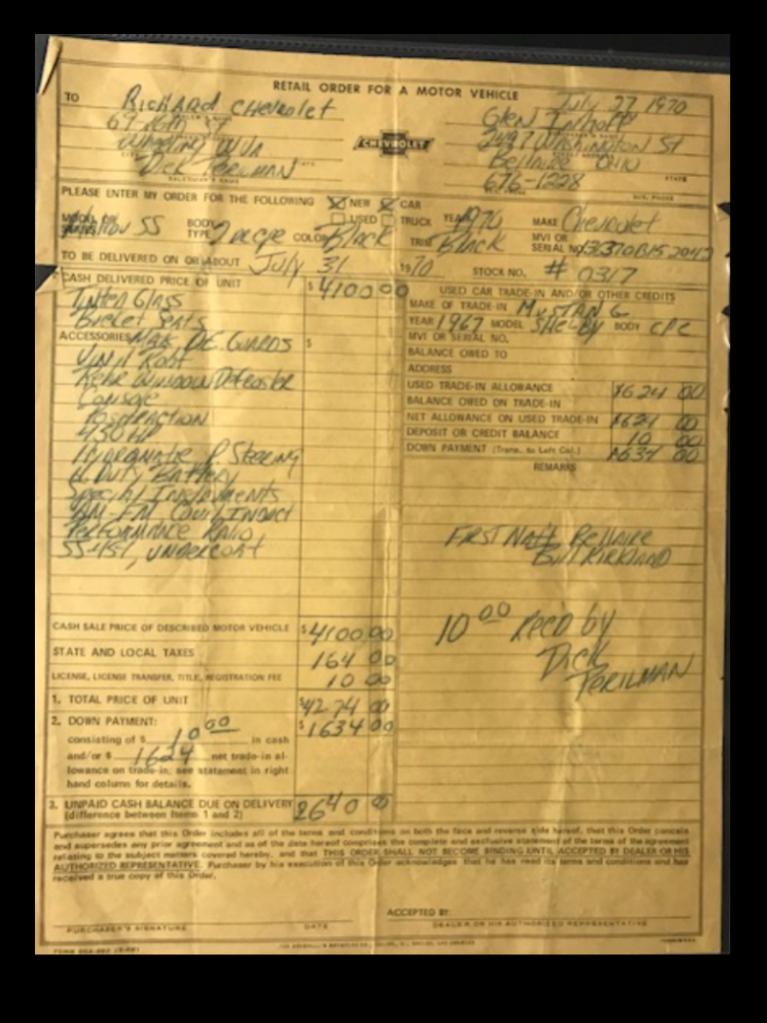 RETAIL ORDER FOR A MOTOR VEHICLE
July 27 1970
TO Richard Chevrolet
69 16th St
Wheeling WVA
Dick Perilman
SALESMAN'S NAME
CHEVROLET
Glen
Washington St
Bellaire Ohio
676-1228
STATE
PLEASE ENTER MY ORDER FOR THE FOLLOWING NEW CAR
USED TRUCK YEAR 1970 MAKE Chevrolet
SS BODY TYPE COLOR Black TRIM Black MVI OR SERIAL NO.
TO BE DELIVERED ON OR ABOUT July 31 1970 STOCK NO. # 0317
CASH DELIVERED PRICE OF UNIT $ 4100 00
Tinted Glass
Bucket Seats
ACCESSORIES Guards $
Vinyl Roof
Rear Window Defroster
Console
Positraction
P. Steering
H. Duty Battery
Special Instruments
AM FM
Performance Ratio
undercoat
USED CAR TRADE-IN AND/OR OTHER CREDITS
MAKE OF TRADE-IN Mustang
YEAR 1967 MODEL Shelby BODY CPE
MVI OR SERIAL NO.
BALANCE OWED TO
ADDRESS
USED TRADE-IN ALLOWANCE 1624 00
BALANCE OWED ON TRADE-IN
NET ALLOWANCE ON USED TRADE-IN 1624 00
DEPOSIT OR CREDIT BALANCE 10 00
DOWN PAYMENT (Trans. to Left Col.) 1634 00
REMARKS
First Natl. Bellaire
Bill Kirkland
10 00 Rec'd by
Dick
Perilman
CASH SALE PRICE OF DESCRIBED MOTOR VEHICLE $ 4100 00
STATE AND LOCAL TAXES 164 00
LICENSE, LICENSE TRANSFER, TITLE, REGISTRATION FEE 10 00
1. TOTAL PRICE OF UNIT $ 4274 00
2. DOWN PAYMENT: $ 1634 00
consisting of $ 10 00 in cash
and/or $ 1624 net trade-in al-
lowance on trade-in, see statement in right
hand column for details.
3. UNPAID CASH BALANCE DUE ON DELIVERY 2640 00
(difference between Items 1 and 2)
Purchaser agrees that this Order includes all of the terms and conditions on both the face and reverse side hereof, that this Order cancels
and supersedes any prior agreement and as of the date hereof comprises the complete and exclusive statement of the terms of the agreement
relating to the subject matters covered hereby, and that THIS ORDER SHALL NOT BECOME BINDING UNTIL ACCEPTED BY DEALER OR HIS
AUTHORIZED REPRESENTATIVE. Purchaser by his execution of this Order acknowledges that he has read its terms and conditions and has
received a true copy of this Order.
ACCEPTED BY:
PURCHASER'S SIGNATURE DATE DEALER OR HIS AUTHORIZED REPRESENTATIVE